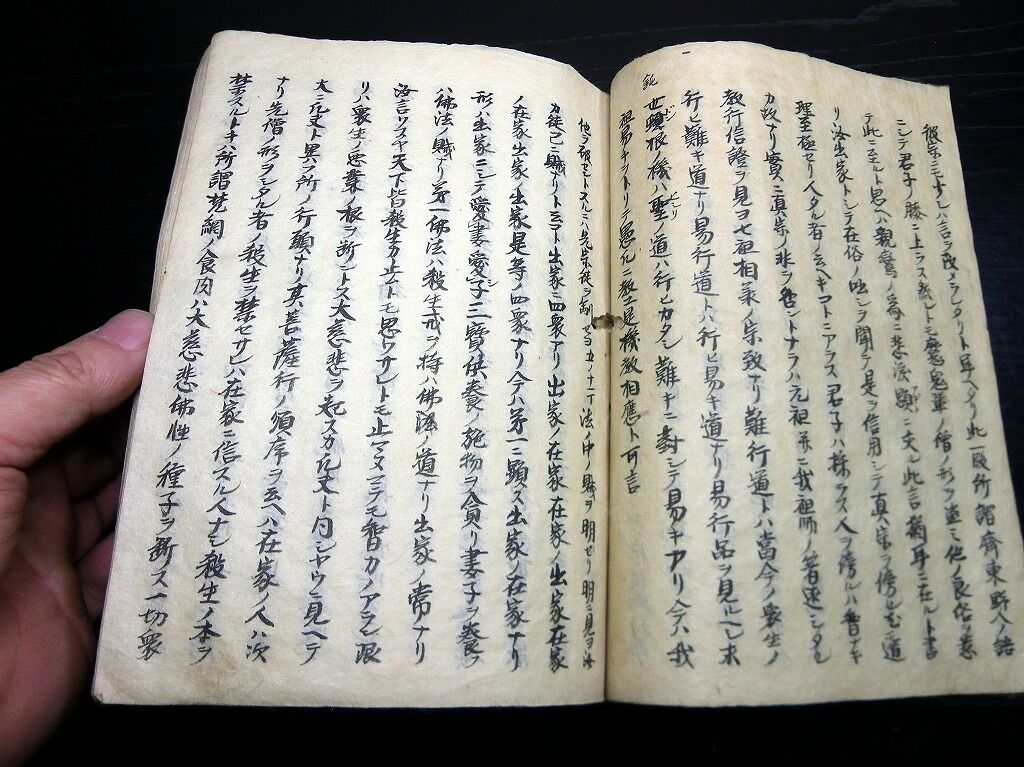 彼宗ニモナシハ言ヲ改メラレタリト耳ヘタリ此一段所謂齊東野人ノ語
ニシテ君子ノ勝ニ上ラス 魔鬼軍ノ僧ノ形ヲ盗ミ他ノ良俗ヲ惹
テ此ニ至ルト思ヘハ親鸞ノ為ニ悲泣 此言猶耳ニ在ルト
リ汝出家トシテ在俗ノ ヲ聞テ是ヲ信用シテ真宗ヲ謗ル 道
理至極セリ人タル者ノ云ヘキコトニアラス君子ハ採ラス人ヲ謗ルハ
カ故ナリ實ニ真宗ノ非ヲ ントナラハ元祖并ニ我祖師ノ著述シタル
教行信證ヲ見ヨ七祖相承ノ宗致ナリ難行道トハ當今ノ衆生ノ
行ヒ難キ道ナリ易行道トハ行ヒ易キ道ナリ易行品ヲ見ルヘシ末
世鈍根ノ機ハ聖ノ道ハ行ヒカタシ難キニ對シテ易キアリ今ハ我
鈍
祖易キヲトリテ愚凡ニ教ユ是機教相應ト可言
他ヲ破セントスルニハ先宗徒ヲ 法ノ中ノ賊ヲ明セリ明ニ見ヨ汝
カ徒己ニ賊ナリト云フ出家ニ四衆アリ出家ノ在家在家ノ出家在家
ノ在家出家ノ出家是等ノ四衆ナリ今ハ第一ニ顕ス出家ノ在家ナリ
形ハ出家ニシテ愛妻愛子ニ三寶供養ノ施物ヲ貪リ妻子ヲ養フ
ハ佛法ノ賊ナリ第一佛法ハ殺生戒ヲ持ハ佛法ノ道ナリ出家ノ常ナリ
汝言ワスヤ天下皆殺生カ止トモ思ワサレトモ止マヌマテモ智力ノアラン限
リハ衆生ノ悪業ノ根ヲ断ントス大慈悲ヲ起スカ凡夫ト同シヤウニ見ヘテ
大ニ凡夫ト異フ所ノ行願ナリ其菩薩行ノ順序ヲ云ヘハ在家ノ人ハ次
ナリ先僧ノ形ヲシタル者ノ殺生ヲ禁セサレハ在家ニ信スル人ナシ殺生ノ本ヲ
禁スルトキハ所謂梵網ノ食肉ハ大慈悲佛性ノ種子ヲ断ス一切衆